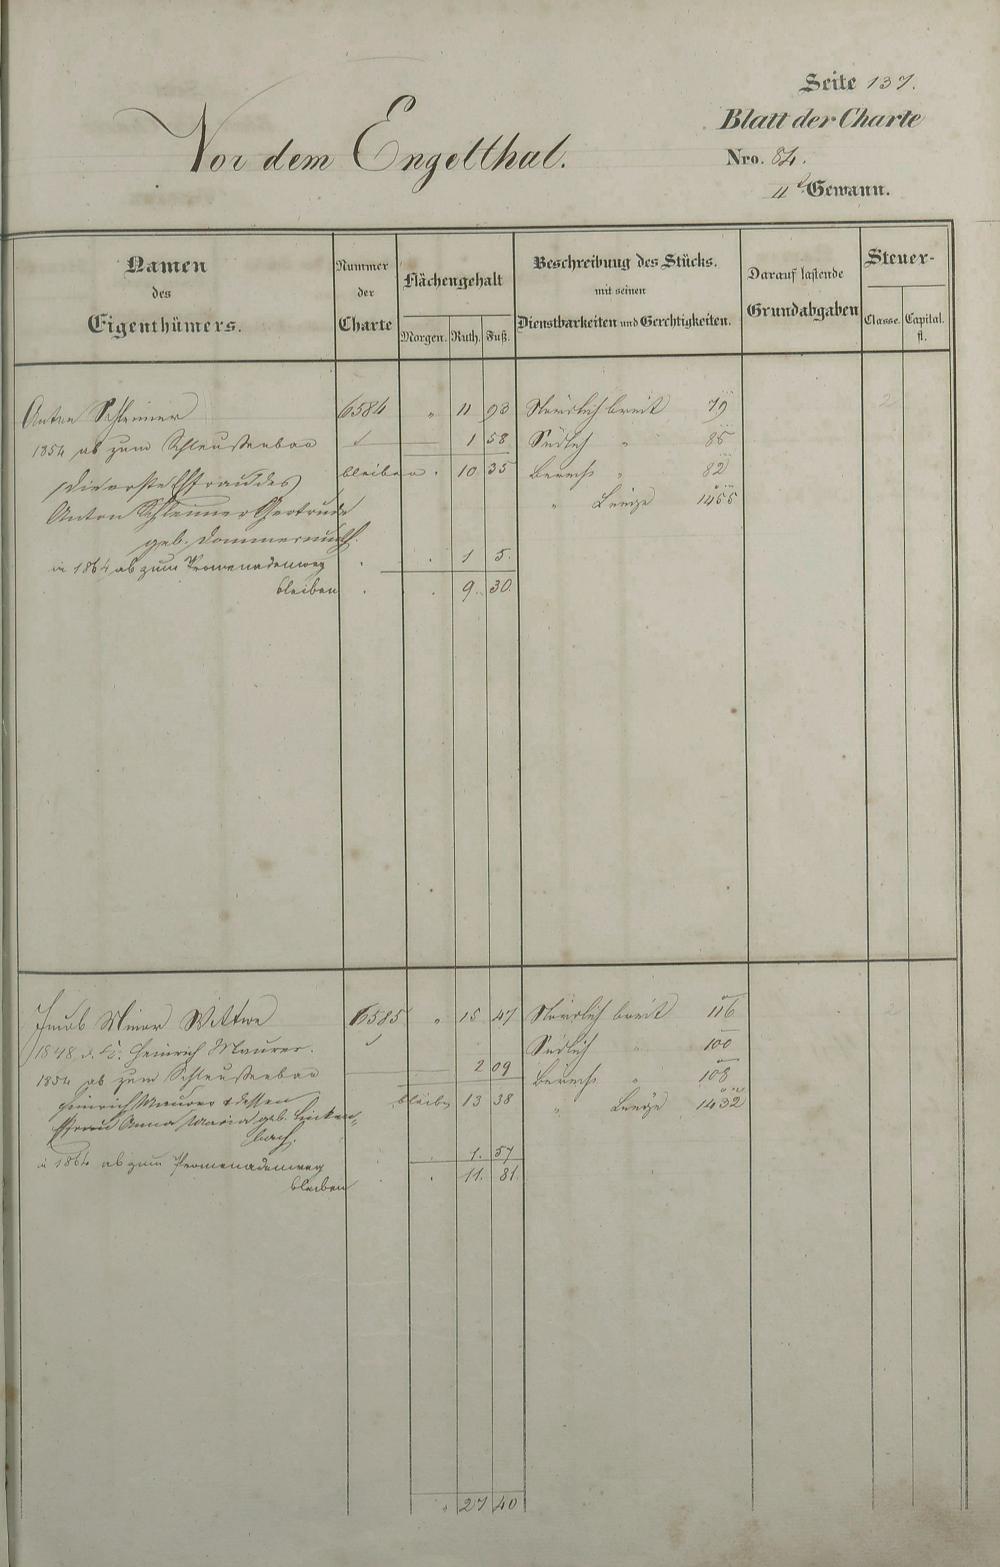 Seite 137.
Vor dem Engelthal.
Blatt der Charte
Nro. 84.
4t Gewann.
Namen des Eigenthümers.
Nummer der Charte
Flächengehalt
Morgen. Ruth. Fuß.
Beschreibung des Stücks.
mit seinen
Dienstbarkeiten und Gerechtigkeiten.
Darauf lastende
Grundabgaben
Steuer-
Classe. Capital. fl.
Anton Schleimer 6584 „ 11 93 Nördlich breit 79
1854 ab zum Schleußenbau 1 58 Südlich „ 85
bleiben 10 35 Berechn „ 82
die erste Ehefrau des
„ Länge 1455
Anton Schleimer Gertrude
geb. Dommermuth.
in 1864 ab zum Promenadenweg . . 1 5.
bleiben . . 9. 30.
Jacob Wittwe 6585 „ 15 47 Nördlich breit 116
1848 Heinrich Maurer. Südlich „ 100
2 09
1854 ab zum Schleußenbau Berechn „ 108
Heinrich Maurer & dessen bleiben 13 38 „ Länge 1432
Ehefrau Anna Maria geb. Linken-
bach.
1. 57
in 1864 ab zum Promenadenweg
bleiben . . 11. 81.
„ 27 40